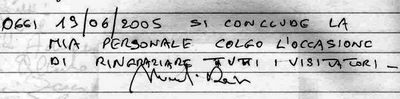 OGGI 19/06/2005 SI CONCLUDE LA
MIA PERSONALE COLGO L'OCCASIONE
DI RINGRAZIARE TUTTI I VISITATORI -